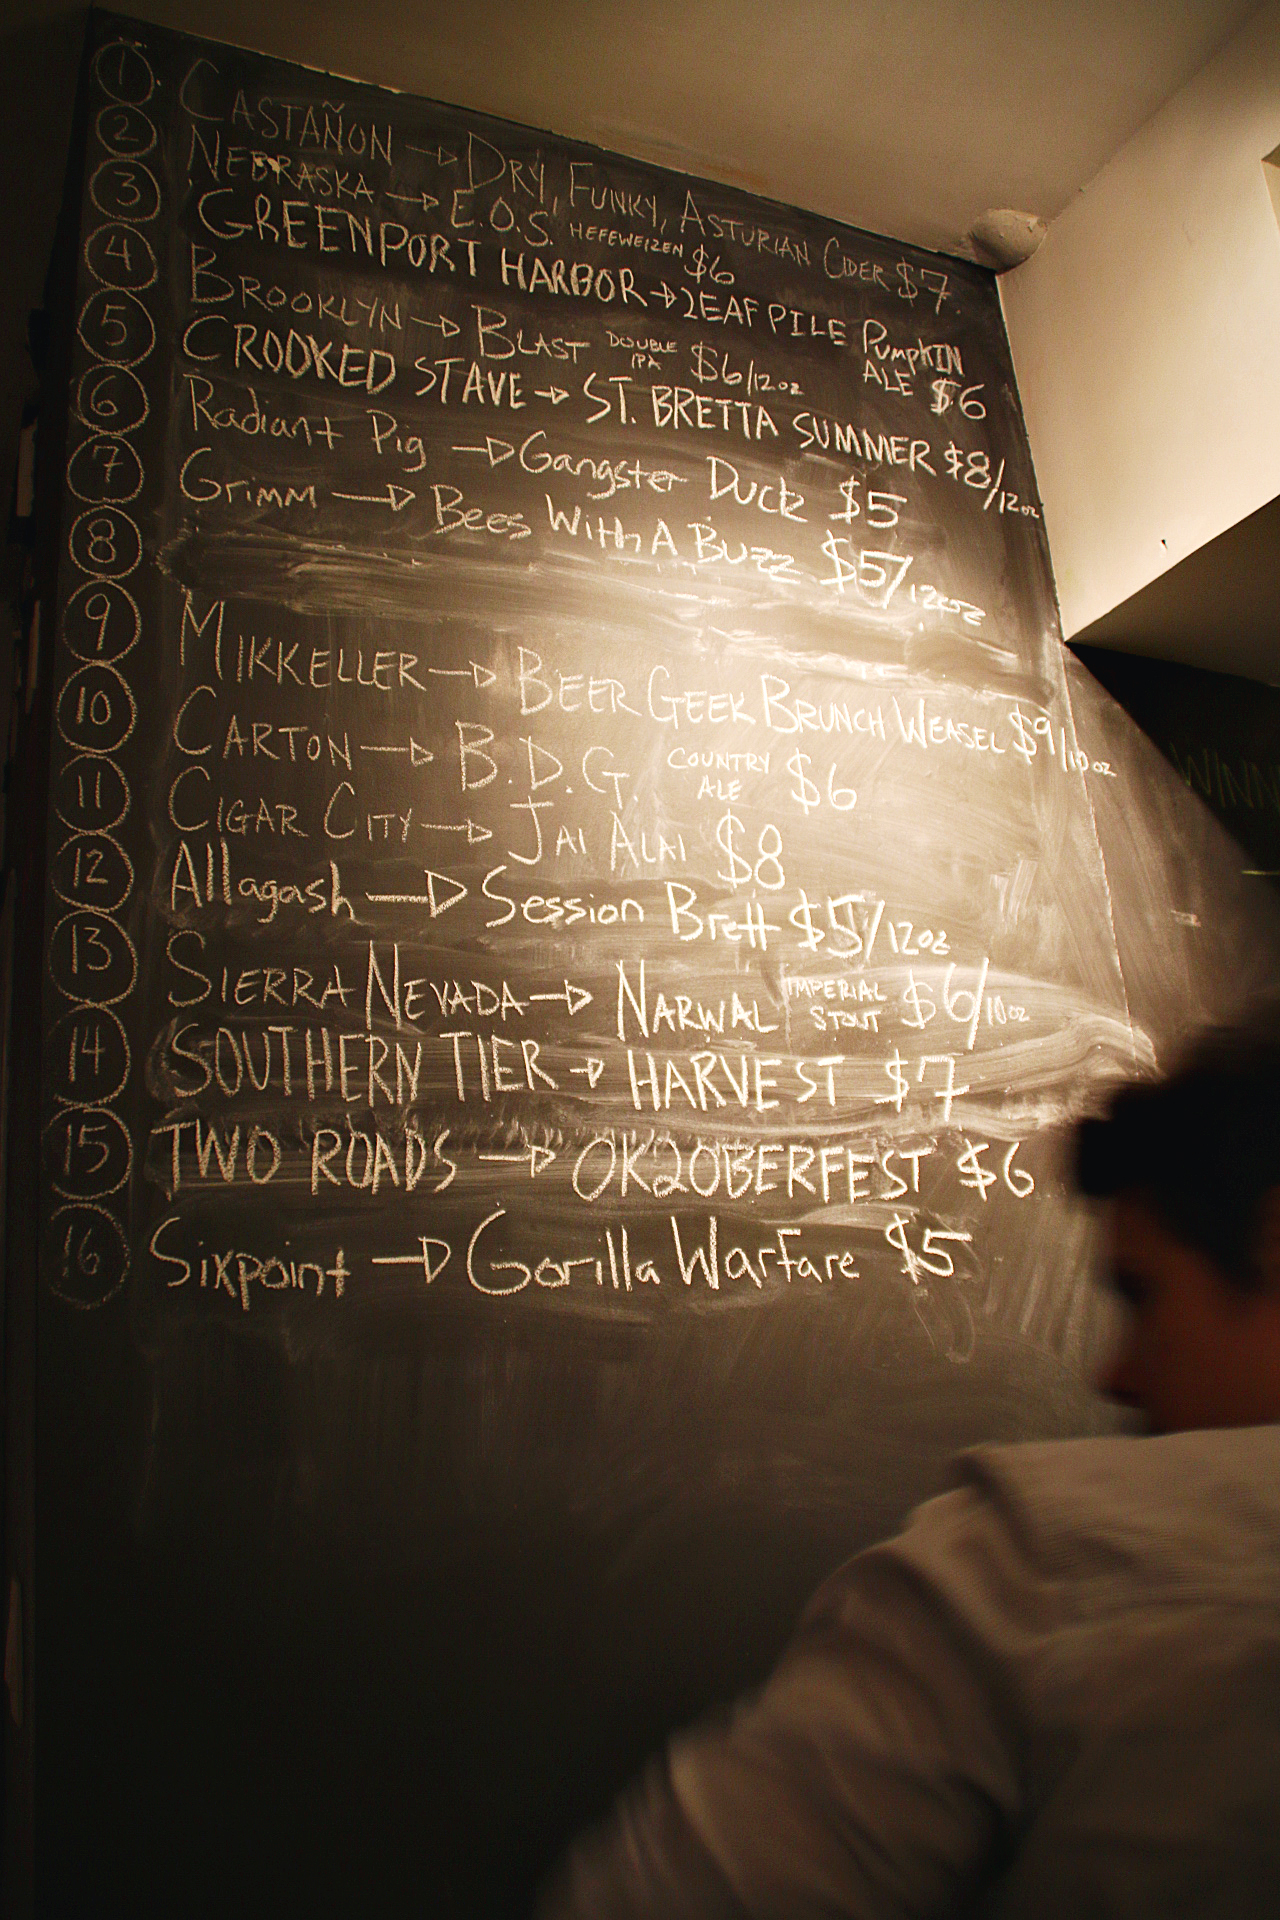 1 CASTAÑON → DRY, FUNKY, ASTURIAN CIDER $7
2 NEBRASKA → E.O.S. HEFEWEIZEN $6
3 GREENPORT HARBOR → LEAF PILE PUMPKIN ALE $6
4 BROOKLYN → BLAST DOUBLE IPA $6/12oz
5 CROOKED STAVE → ST. BRETTA SUMMER $8/12oz
6 Radiant Pig → Gangster Duck $5
7 Grimm → Bees With A Buzz $5/12oz
8
9 MIKKELLER → BEER GEEK BRUNCH WEASEL $9/10oz
10 CARTON → B.D.G. COUNTRY ALE $6
11 CIGAR CITY → JAI ALAI $8
12 Allagash → Session Brett $5/12oz
13 SIERRA NEVADA → NARWAL IMPERIAL STOUT $6/10oz
14 SOUTHERN TIER → HARVEST $7
15 TWO ROADS → OKTOBERFEST $6
16 Sixpoint → Gorilla Warfare $5